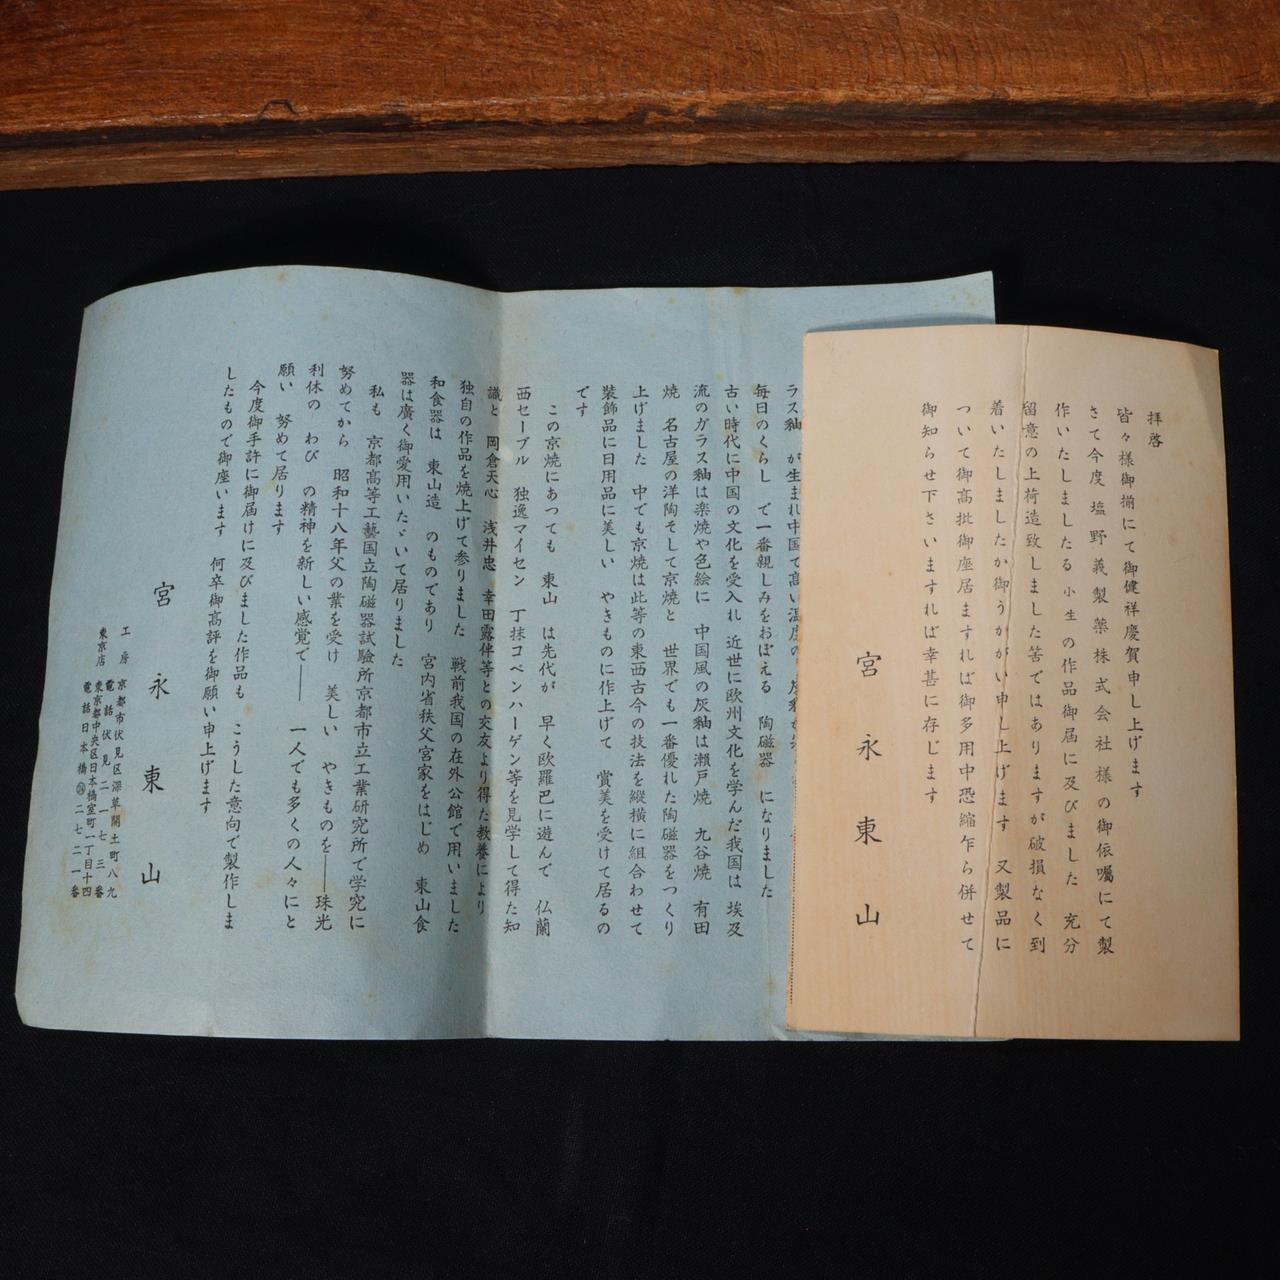 拝啓
皆々様御揃にて御健祥慶賀申し上げます
さて今度 塩野義製薬株式会社様の御依囑にて製
作いたしましたる 小生 の作品御届に及びました 充分
留意の上荷造致しました筈ではありますが破損なく到
着いたしましたか御うかがい申し上げます 又製品に
ついて御高批御座居ますれば御多用中恐縮乍ら併せて
御知らせ下さいますれば幸甚に存じます
宮永東山
ラス釉 が生まれ中国で高い温度の
毎日のくらし で一番親しみをおぼえる 陶磁器 になりました
古い時代に中国の文化を受入れ 近世に欧州文化を学んだ我国は 埃及
流のガラス釉は楽焼や色絵に 中国風の灰釉は瀬戸焼 九谷焼 有田
焼 名古屋の洋陶そして京焼と 世界でも一番優れた陶磁器をつくり
上げました 中でも京焼は此等の東西古今の技法を縦横に組合わせて
装飾品に日用品に美しい やきものに作上げて 賞美を受けて居るの
です
この京焼にあつても 東山 は先代が 早く欧羅巴に遊んで 仏蘭
西セーブル 独逸マイセン 丁抹コペンハーゲン等を見学して得た知
識と 岡倉天心 浅井忠 幸田露伴等との交友より得た教養により
独自の作品を焼上げて参りました 戦前我国の在外公館で用いました
和食器は 東山造 のものであり 宮内省秩父宮家をはじめ 東山食
器は廣く御愛用いたゞいて居りました
私も 京都高等工藝国立陶磁器試験所京都市立工業研究所で学究に
努めてから 昭和十八年父の業を受け 美しい やきものを――珠光
利休の わび の精神を新しい感覚で―― 一人でも多くの人々にと
願い 努めて居ります
今度御手許に御届けに及びました作品も こうした意向で製作しま
したもので御座います 何卒御高評を御願い申上げます
宮永東山
工房 京都市伏見区深草開土町八九
電話伏見二一七三番
東京店 東京都中央区日本橋室町一丁目十四
電話日本橋㉔二七二一番